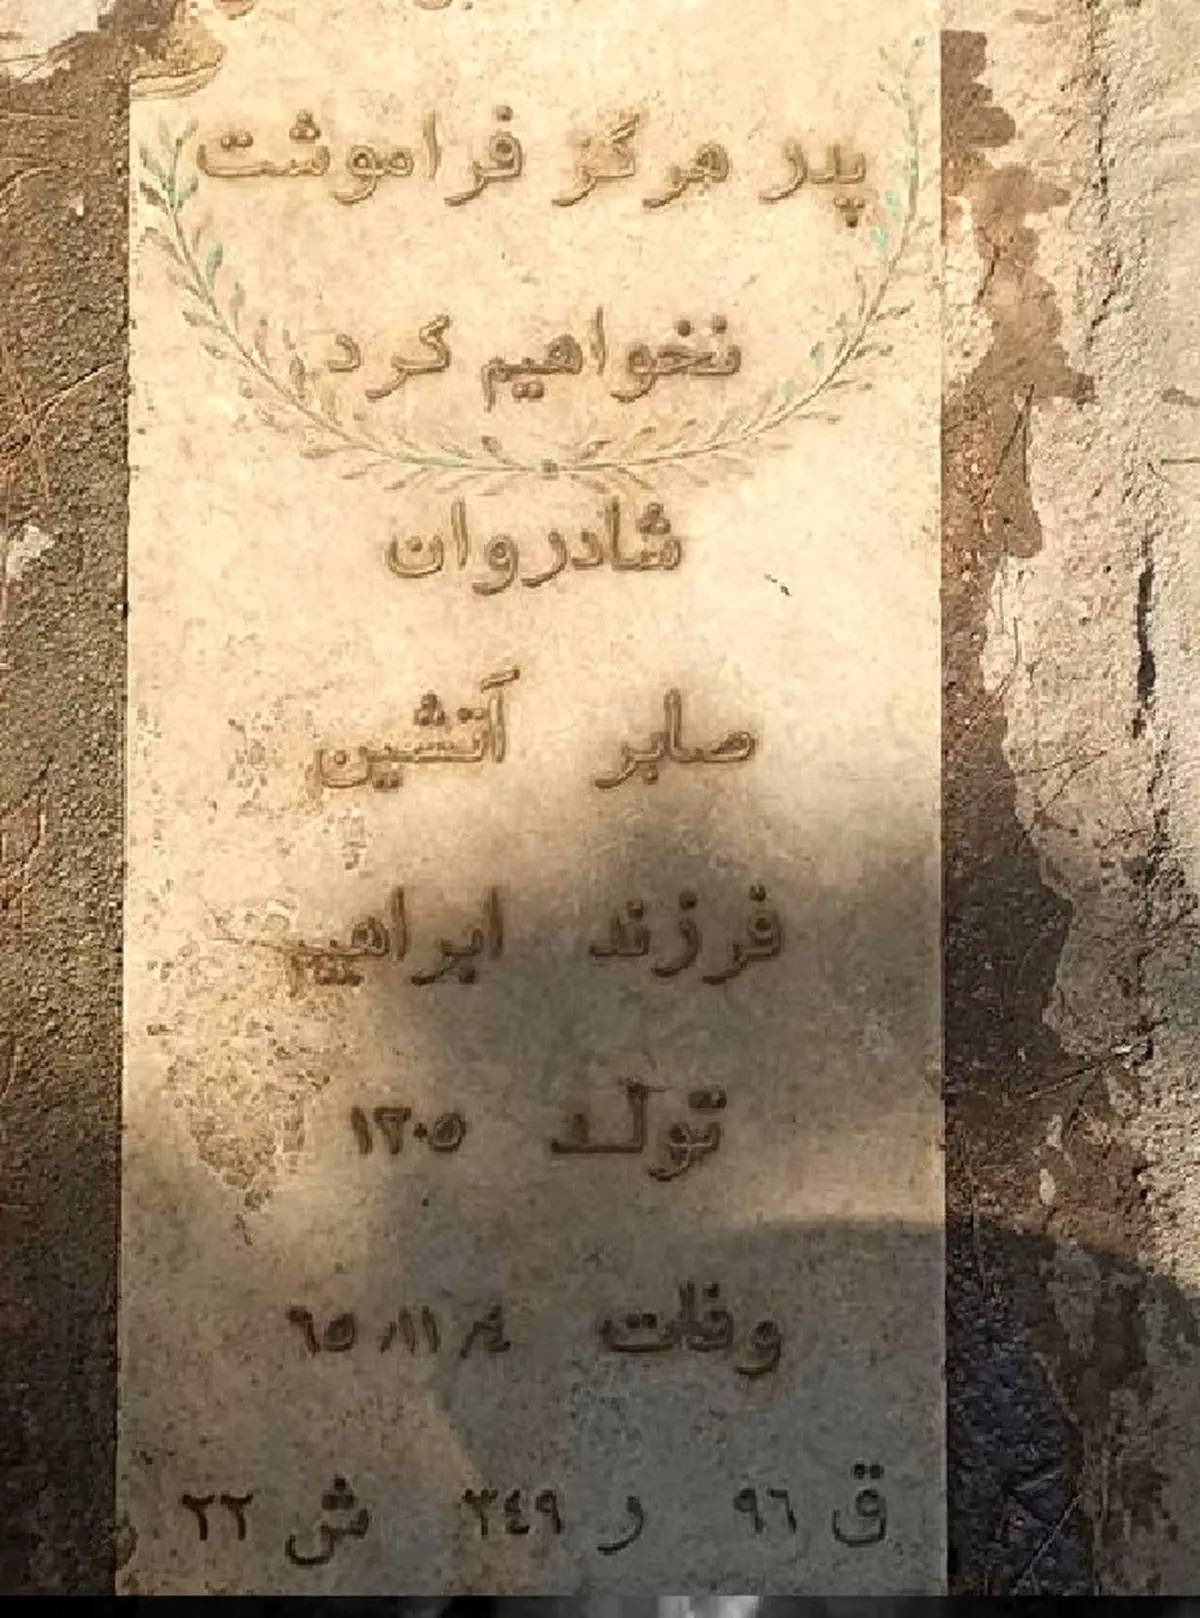 پدر هرگز فراموشت
نخواهیم کرد
شادروان
صابر آتشین
فرزند ابراهیم
تولد ۱۳۰۵
وفات ٤ /۱۱/ ٦۵
ق ۹٦ ر ۳٤۹ ش ۲۲